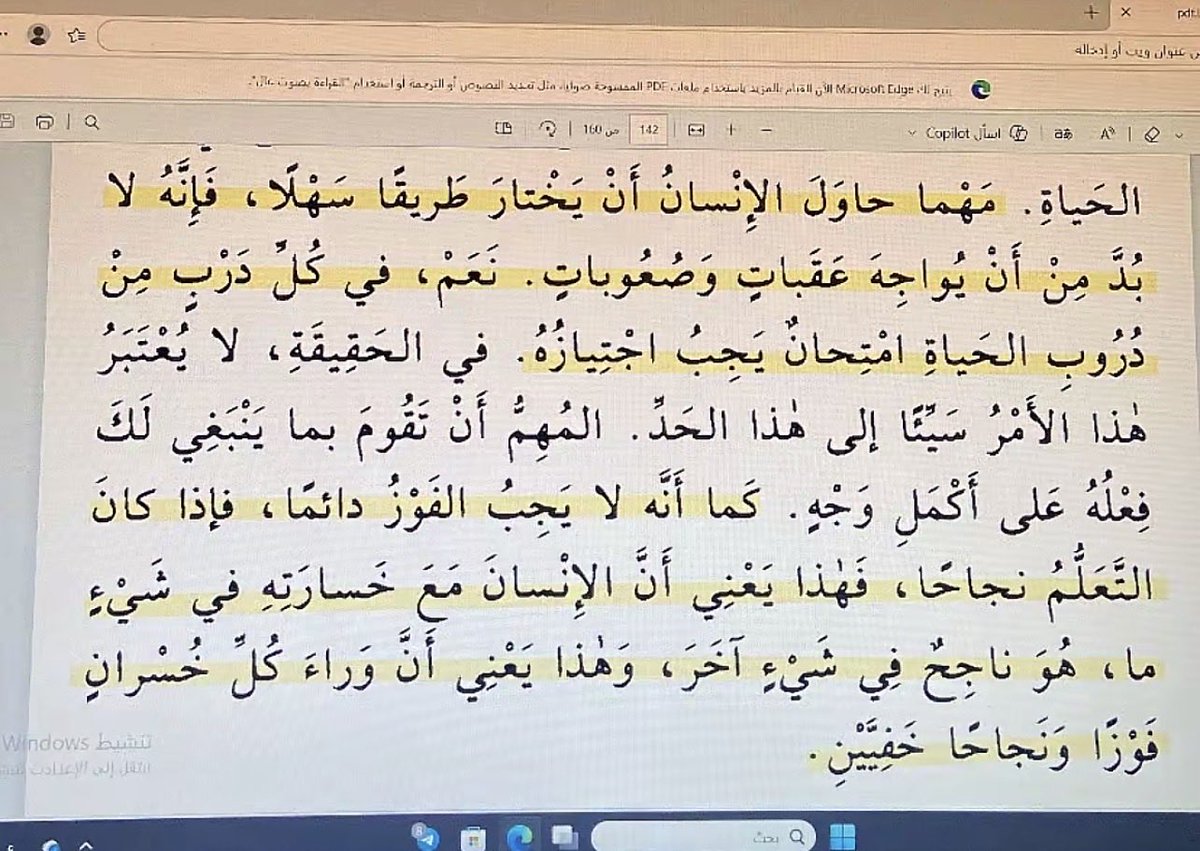 pdf.
عنوان ويب أو إدخاله
يتيح لك Microsoft Edge الآن القيام بالمزيد باستخدام ملفات PDF الممسوحة ضوئيا، مثل تحديد النصوص أو الترجمة أو استخدام "القراءة بصوت عالٍ".
اسأل Copilot
142
من 160
الحَياةِ. مَهْما حاوَلَ الإِنْسانُ أَنْ يَخْتارَ طَريقًا سَهْلًا، فَإِنَّهُ لا
بُدَّ مِنْ أَنْ يُواجِهَ عَقَباتٍ وَصُعُوباتٍ. نَعَمْ، في كُلِّ دَرْبٍ مِنْ
دُرُوبِ الحَياةِ امْتِحانٌ يَجِبُ اجْتِيازُهُ. في الحَقِيقَةِ، لا يُعْتَبَرُ
هٰذا الأَمْرُ سَيِّئًا إلى هٰذا الحَدِّ. المُهِمُّ أَنْ تَقُومَ بما يَنْبَغِي لَكَ
فِعْلُهُ عَلى أَكْمَلِ وَجْهٍ. كَما أَنَّه لا يَجِبُ الفَوْزُ دائمًا، فإذا كانَ
التَّعَلُّمُ نجاحًا، فَهٰذا يَعْنِي أَنَّ الإِنْسانَ مَعَ خَسارَتِهِ في شَيْءٍ
ما، هُوَ ناجِحٌ فِي شَيْءٍ آخَرَ، وَهٰذا يَعْنِي أَنَّ وَراءَ كُلِّ خُسْرانٍ
فَوْزًا وَنَجاحًا خَفِيَّيْنِ.
تنشيط Windows
انتقل إلى الإعدادات
بحث
8